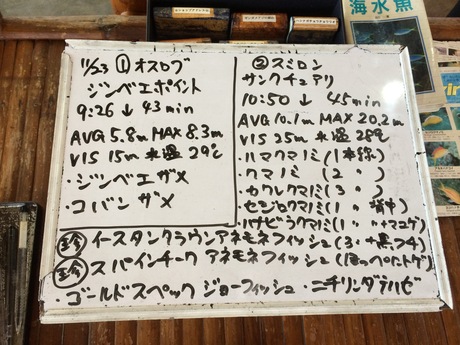 海水魚
11/23 ① オスロブ
ジンベエポイント
9:26 ↓ 43 min
AVG 5.8m MAX 8.3m
VIS 15m 水温 29℃
・ジンベエザメ
・コバンザメ
② スミロン
サンクチュアリ
10:50 ↓ 45min
AVG 10.1m MAX 20.2m
VIS 25m 水温 28℃
・ハマクマノミ(1本線)
・クマノミ(2 〃 )
・カクレクマノミ(3 〃 )
・セジロクマノミ(1 〃 背中)
・ハナビラクマノミ(1 〃
珍 イースタンクラウンアネモネフィッシュ(3
珍 スパインチーク アネモネフィッシュ
・ゴールドスペック ジョーフィッシュ ・ニチリンダテハゼ